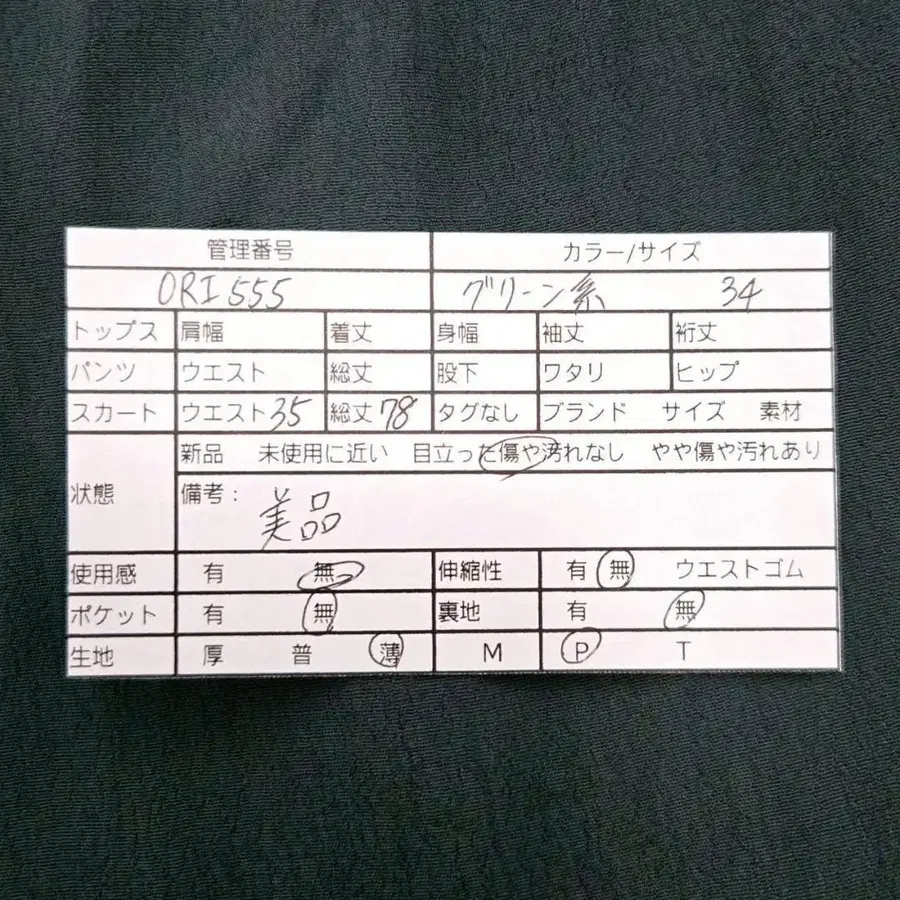 管理番号 カラー/サイズ
ORI555 グリーン系 34
トップス 肩幅 着丈 身幅 袖丈 裄丈
パンツ ウエスト 総丈 股下 ワタリ ヒップ
スカート ウエスト35 総丈78 タグなし ブランド サイズ 素材
新品 未使用に近い 目立った傷や汚れなし やや傷や汚れあり
状態 備考：
美品
使用感 有 無 伸縮性 有 無 ウエストゴム
ポケット 有 無 裏地 有 無
生地 厚 普 薄 M P T